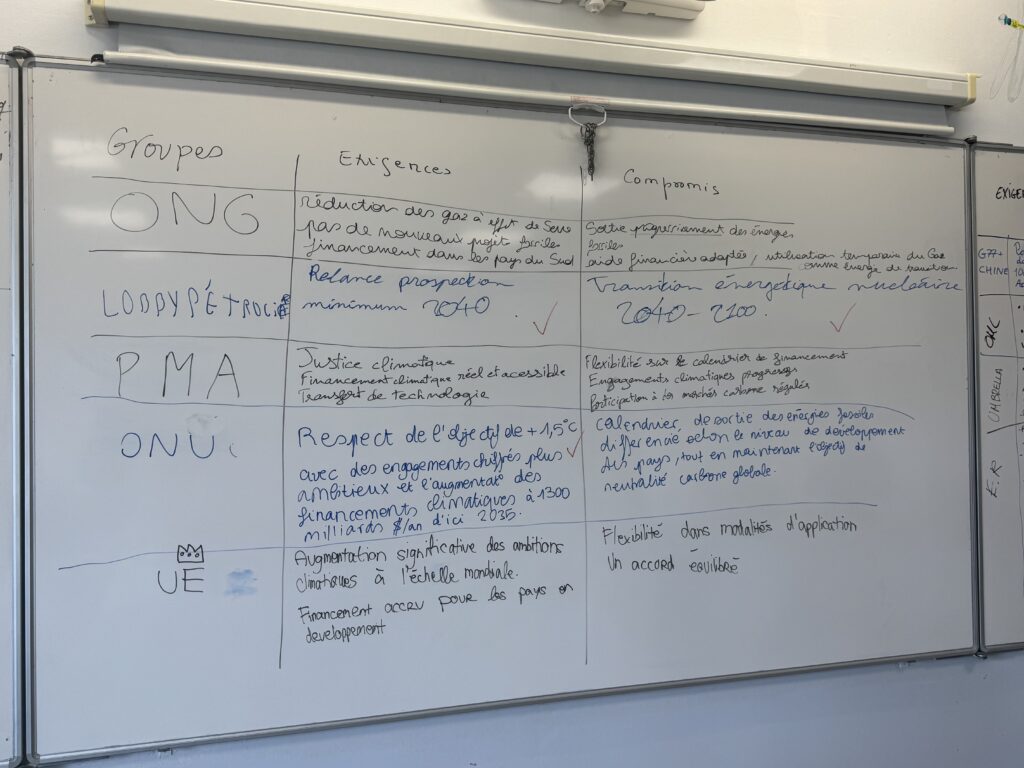 Groupes
Exigences
Compromis
ONG
réduction des gaz à effet de Serre
pas de nouveaux projet fossiles
financement dans les pays du Sud
Sortie des énergies
fossiles
aide financière adaptés, utilisation temporaire du Gaz
comme énergie de transition
LOBBY PÉTROLIER
Relance prospection
minimum 2040
Transition énergetique nucléaire
2040 - 2100.
PMA
Justice climatique
Financement climatique réel et acessible
Transfert de technologie
Flexibilité sur le calendrier de financement
Engagements climatiques progressifs
Participation à des marchés carbone régulés
ONU
Respect de l'objectif de +1,5°C
avec des engagements chiffrés plus
ambitieux et l'augmentat° des
financements climatiques à 1300
milliards $/an d'ici 2035.
calendrier, de sortie des énergies fossiles
differencié selon le niveau de développement
des pays, tout en maintenant l'objectif de
neutralité carbone globale.
UE
Augmentation significative des ambitions
climatiques à l'échelle mondiale.
Financement accru pour les pays en
developpement
Flexibilité dans modalités d'application
Un accord équilibré
EXIGE
G77+
CHINE
UMBRELLA
E.R